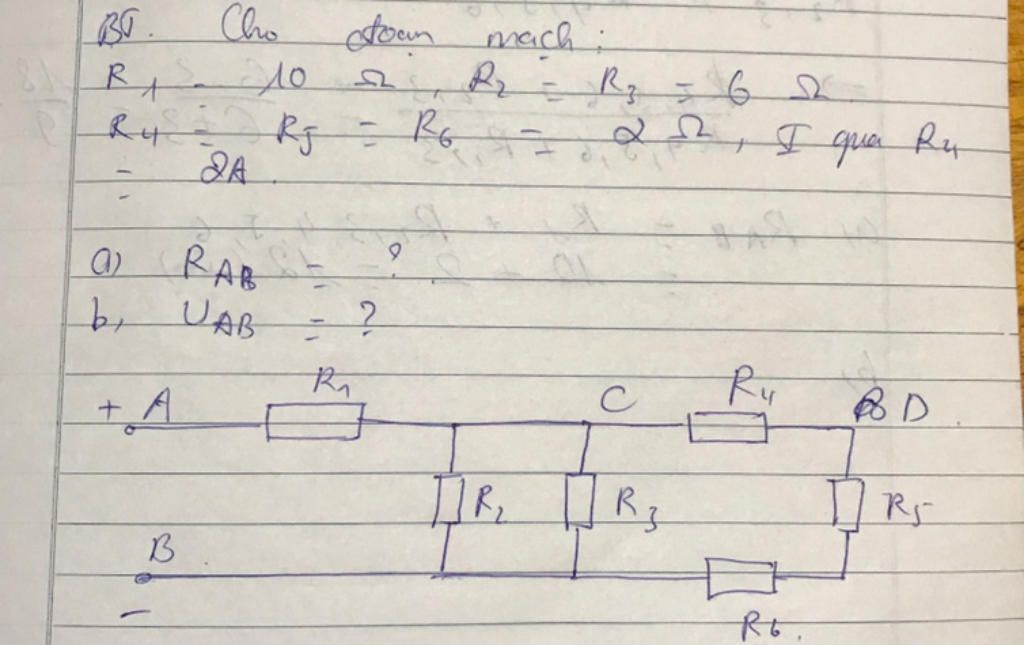 BT. Cho đoạn mạch :
R1 = 10 Ω, R2 = R3 = 6 Ω
R4 = R5 = R6 = 2 Ω, I qua R4
= 2A.
a) RAB = ?
b, UAB = ?
+ A R1 C R4 D
R2 R3 R5
B
− R6.